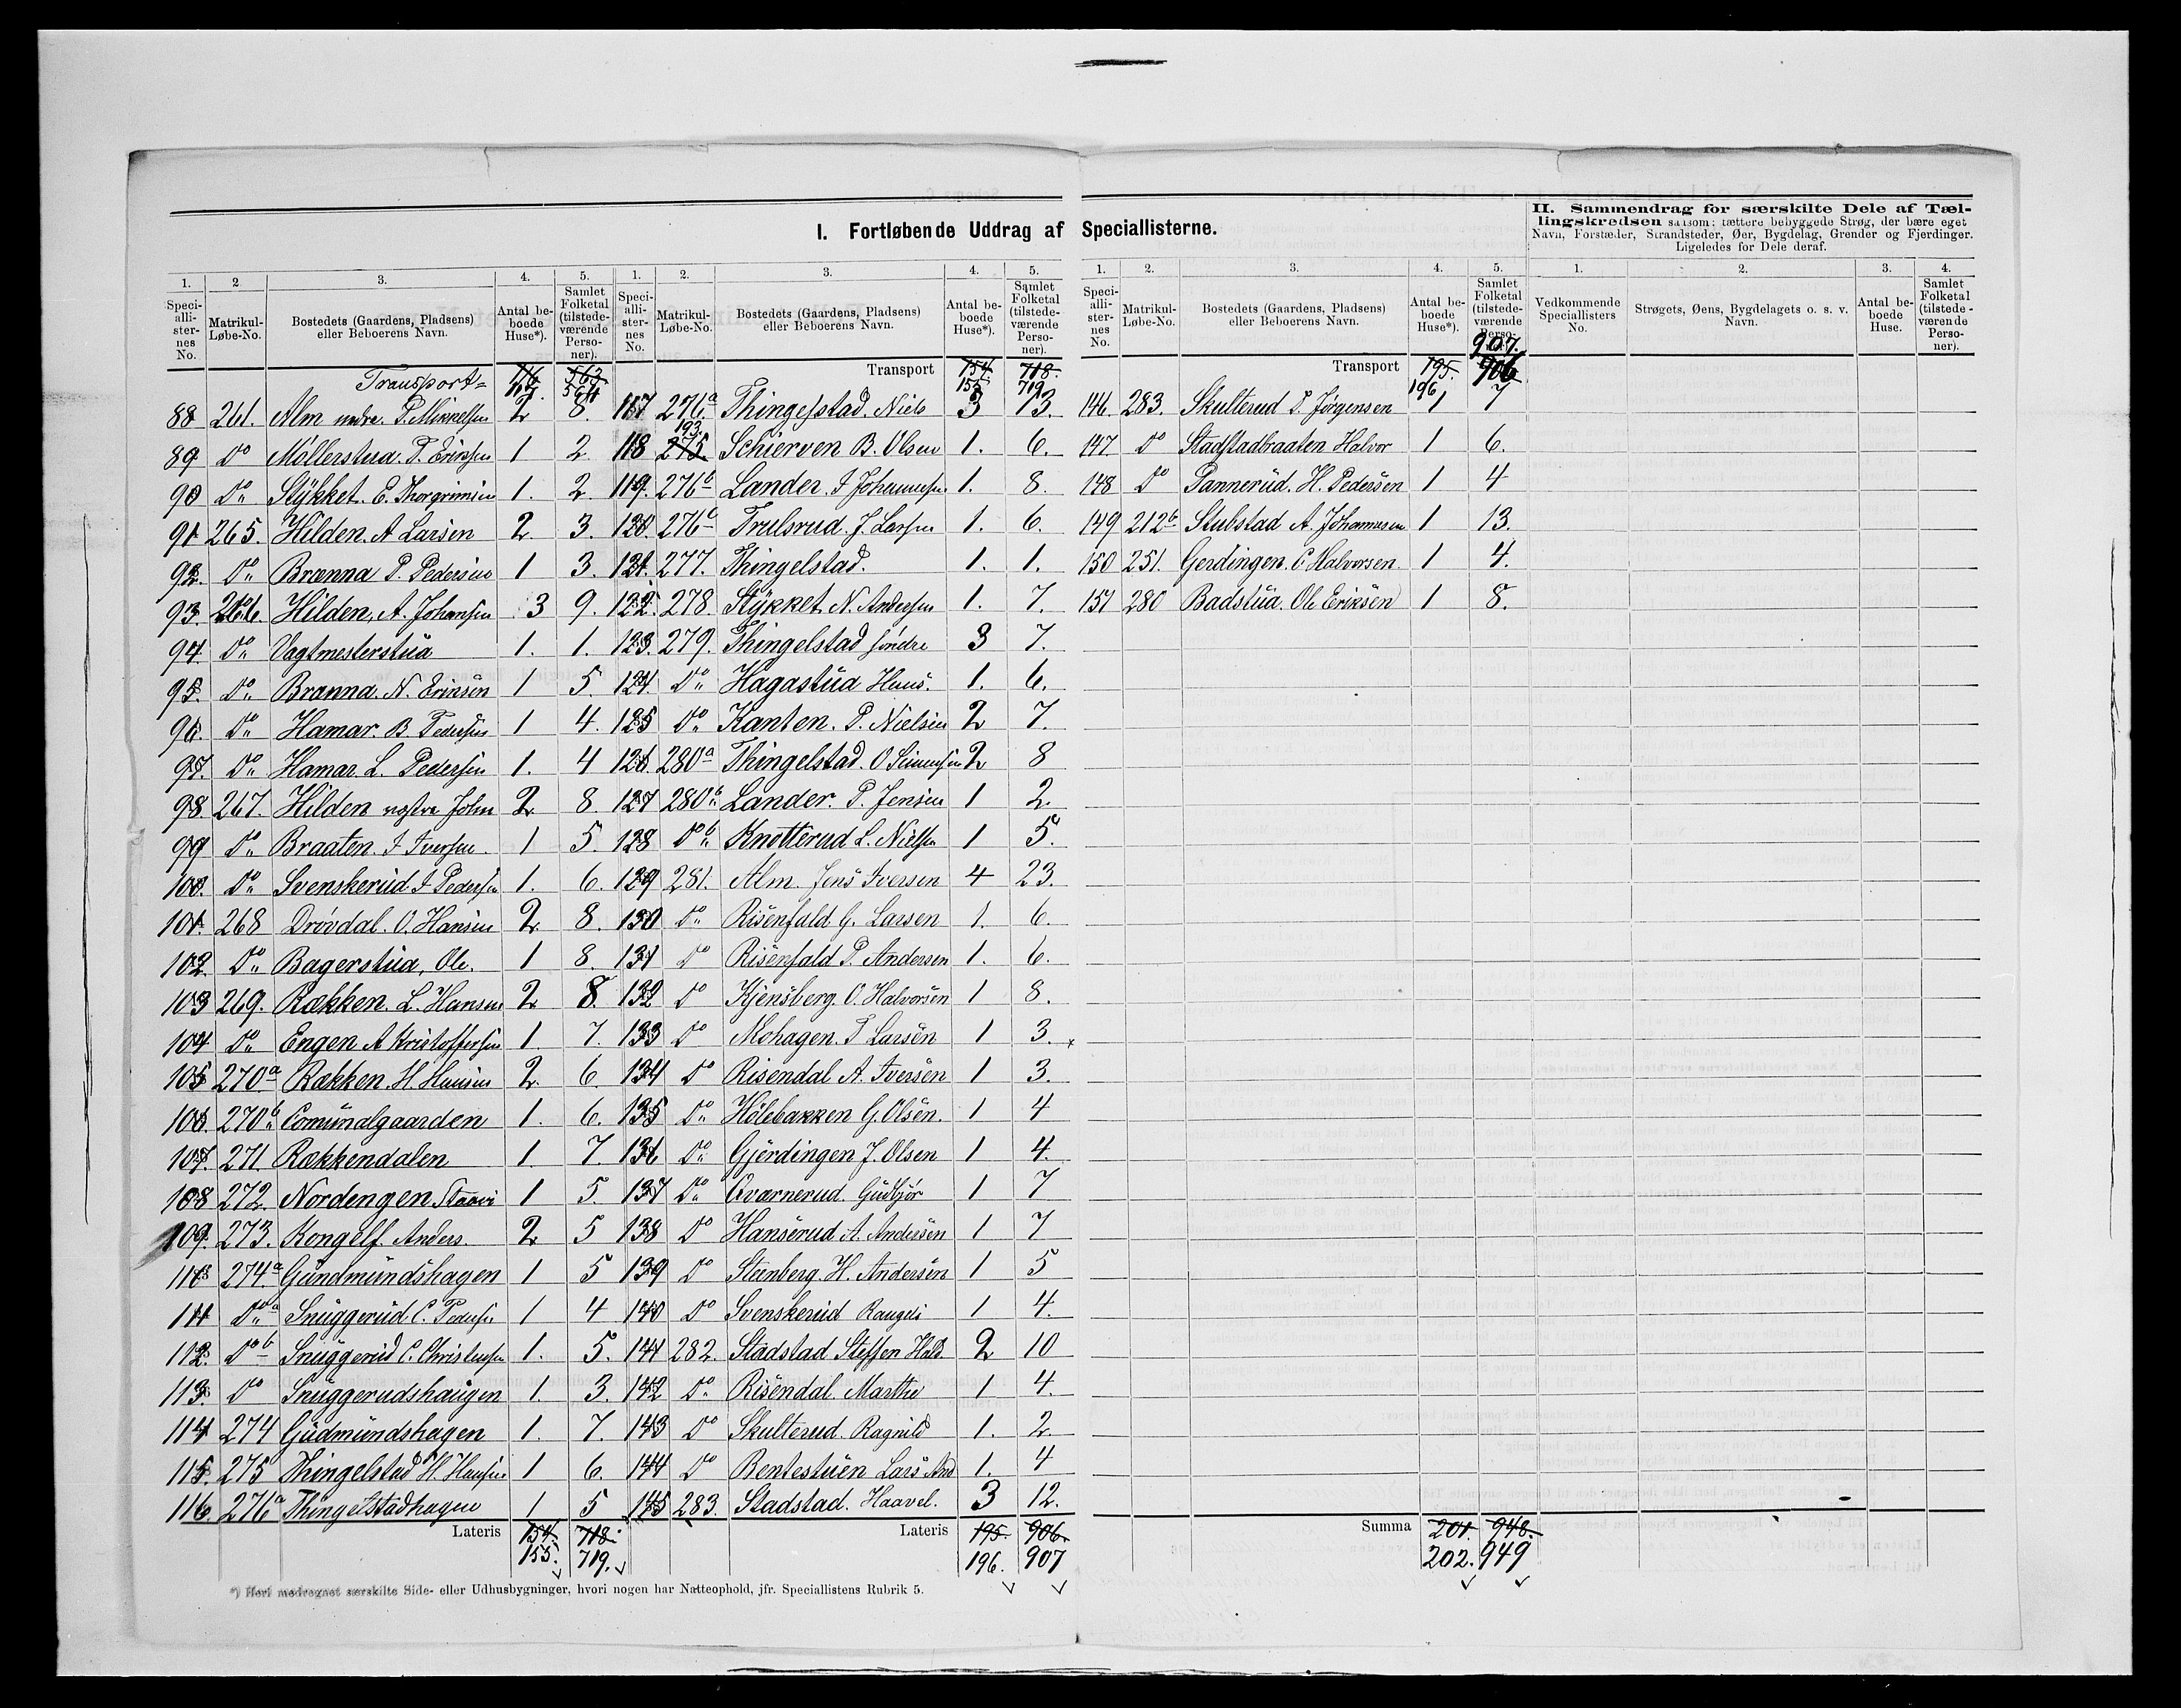 I. Fortløbende Uddrag af Speciallisterne.
II. Sammendrag for særskilte Dele af Tæl-
lingskredsen saasom: tættere bebyggede Strøg, der bære eget
Navn, Forstæder, Strandsteder, Øer, Bygdelag, Grender og Fjerdinger.
Ligeledes for Dele deraf.
1. 2. 3. 4. 5.
Speciallisternes No. Matrikul-Løbe-No. Bostedets (Gaardens, Pladsens) eller Beboerens Navn. Antal beboede Huse*). Samlet Folketal (tilstedeværende Personer).
Transport= 116 563
117. 564
88 261. Alm nedre. P. Mikkelsen 2 8.
89 Do Møllerstua. P. Eriksen 1 2.
90 Do Stykket. E. Thorgrimsen 1. 2.
91 265. Hilden. A Larsen 2. 3.
92. Do Brænna P. Pedersen 1 3.
93. 266. Hilden, A. Johansen 3 9.
94. Do Vagtmesterstua 1. 1.
95. Do Brænna. N. Eriksen 1 5.
96. Do Hamar. B. Pedersen 1 4.
97. Do Hamar L. Pedersen 1. 4
98. 267. Hilden vestre John 2. 8
99 Do Braaten. I Iversen 1 5.
100. Do Svenskerud. I Pedersen 1. 6.
101. 268 Drøvdal. O. Hansen 2. 8.
102. Do Bagerstua, Ole. 1 8.
103 269. Rækken. L. Hansen 2. 8.
104 Do Engen A Kristoffersen 1. 7.
105 270a Rækken. H. Hansen 2. 6.
106. 270b Comunalgaarden 1. 6.
107. 271. Rækkendalen 1. 7.
108 272. Nordengen 1 5.
109. 273. Kongelf Anders. 2 5
110 274a Gundmundshagen 1 5
111 Do a Snuggerud C. Pedersen 1 4
112. Do b Snuggerud C. Christensen 1. 5.
113. Do Snuggerudshaugen 1. 3.
114 274 Gudmundshagen 1. 7.
115. 275 Thingelstad H. Hansen 1 6.
116. 276a Thingelstadhagen 1 5
Lateris 154 718.
155. 719.
1. 2. 3. 4. 5.
Speciallisternes No. Matrikul-Løbe-No. Bostedets (Gaardens, Pladsens) eller Beboerens Navn. Antal beboede Huse*). Samlet Folketal (tilstedeværende Personer).
Transport 154. 718.
155 719
117 276.a Thingelstad. Niels 3 13.
193.
118 275. Schierven B. Olsen 1. 6.
119. 276b Lander. I Johannesen 1. 8.
120. 276c Trulsrud. J. Larsen 1. 6.
121. 277. Thingelstad. 1. 1.
122. 278. Stykket. N. Andersen 1. 7.
123. 279. Thingelstad søndre 3 7.
124. Do Hagastua Hans. 1. 6.
125 Do Kanten. P. Nielsen 2 7.
126. 280a Thingelstad. O Simensen 2 8
127 280b Lander. P. Jensen 1 2.
128 Do b Knotterud L. Nielsen 1 5.
129 281. Alm. Jens Iversen 4 23.
130 Do Risenfald G. Larsen 1. 6.
131 Do Risenfald P. Andersen 1. 6.
132 Do Kjensberg. O. Halvorsen 1 8.
133 Do Mohagen. P Larsen 1 3.
134 Do Risendal A. Iversen 1 3.
135 Do Holebakken G. Olsen. 1 4
136 Do Gjerdingen J. Olsen 1 4.
137 Do Qvarnerud. Gudbjør 1 7
138 Do Hanserud A. Andersen 1 7
139 Do Steenberg. H. Andersen 1 5
140 Do Svenskerud 1 4.
141 282. Stadstad Steffen Hald. 2 10
142 Do Risendal. Marthe 1 4.
143 Do Skulterud. Ragnild 1. 2.
144 Do Bentestuen Lars And 1. 4
145 283. Stadstad. Haavel. 3 12.
Lateris 195. 906.
196. 907
*) Heri medregnet særskilte Side- eller Udhusbygninger, hvori nogen har Natteophold, jfr. Speciallistens Rubrik 5.
1. 2. 3. 4. 5.
Speciallisternes No. Matrikul-Løbe-No. Bostedets (Gaardens, Pladsens) eller Beboerens Navn. Antal beboede Huse*). Samlet Folketal (tilstedeværende Personer).
907.
Transport 195. 906
196
146. 283. Skulterud P. Jørgensen 1 7
147. Do Stadstadbraaten Halvor 1 6.
148 Do Pannerud. H. Pedersen 1 4
149 212b Stubstad A. Johannesen 1 13.
150 251. Gerdingen. C Halvorsen. 1 4.
151 280 Badstua. Ole Eriksen 1 8.
Summa 201. 948.
202. 949
1. 2. 3. 4.
Vedkommende Speciallisters No. Strøgets, Øens, Bygdelagets o. s. v. Navn. Antal beboede Huse. Samlet Folketal (tilstedeværende Personer).